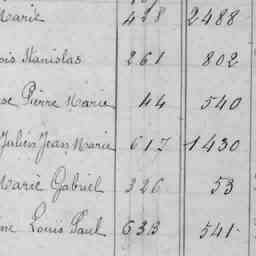 Marie 428 2488
Stanislas 261 802
Pierre Marie 44 540
Julien Jean Marie 617 1430
Marie Gabriel 326 53
Louis Paul 633 541